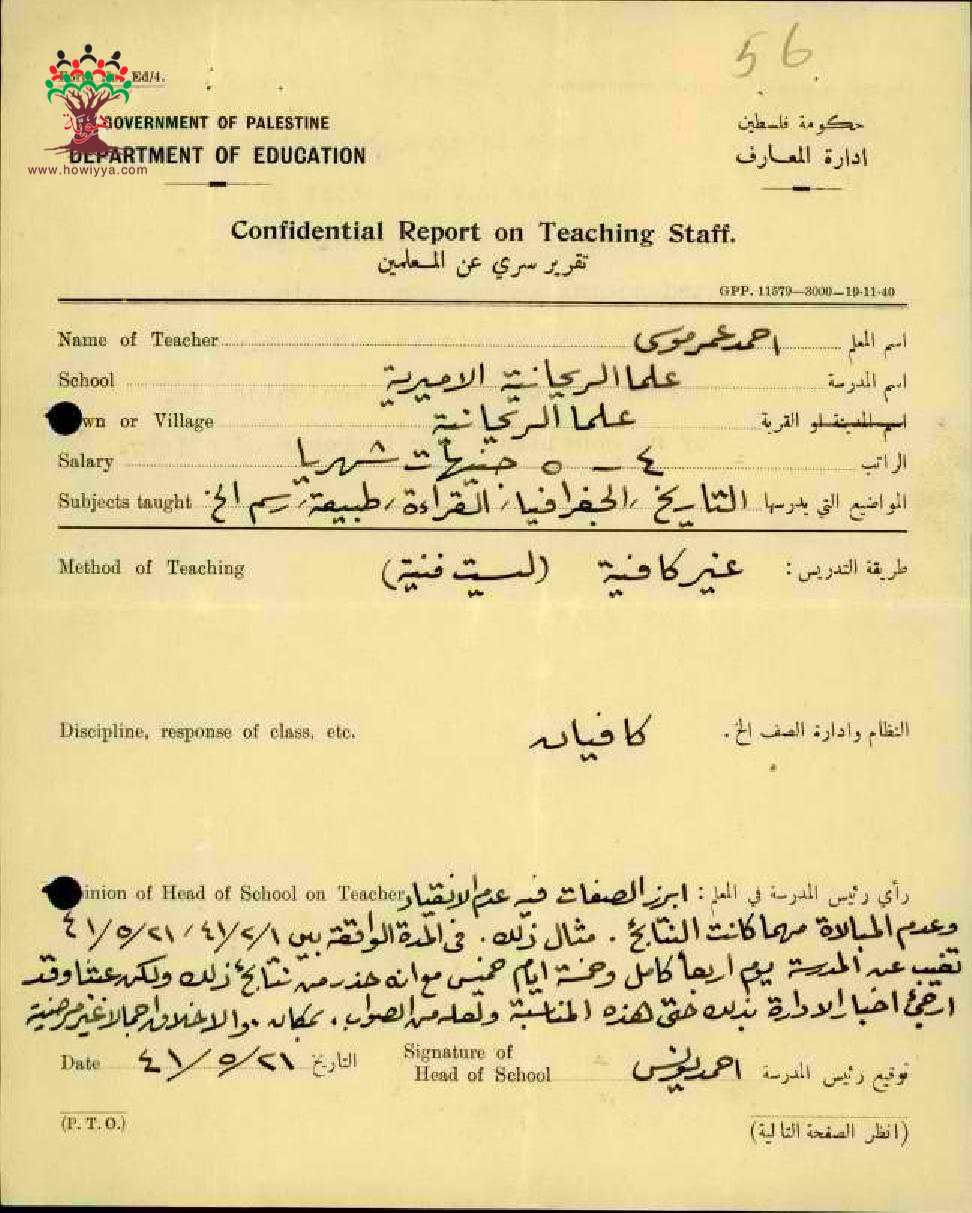 56
Ed/4.
هوية
www.howiyya.com
GOVERNMENT OF PALESTINE
حكومة فلسطين
DEPARTMENT OF EDUCATION
ادارة المعارف
Confidential Report on Teaching Staff.
تقرير سري عن المعلمين
GPP. 11579—3000—19-11-40
Name of Teacher احمد عمر موسى اسم المعلم
School علما الريحانية الاميرية اسم المدرسة
wn or Village علما الريحانية اسم المدينة او القرية
Salary ٤ – ٥ جنيهات شهريا الراتب
Subjects taught التاريخ، الجغرافيا، القراءة، طبيعة، رسم الخ المواضيع التي يدرسها
Method of Teaching غير كافية (ليست فنية) طريقة التدريس :
Discipline, response of class, etc. كافيان النظام وادارة الصف الخ.
inion of Head of School on Teacher رأي رئيس المدرسة في المعلم : ابرز الصفات فيه عدم الانقياد
وعدم المبالاة مهما كانت النتائج . مثال ذلك . في المدة الواقعة بين ٤١/٢/١ ، ٤١/٥/٢١
تغيب عن المدرسة يوم اربعا كامل وخمسة ايام خميس مع انه حذر من نتائج ذلك ولكن عبثا وقد
ارجئ اخبار الادارة بذلك حتى هذه المناسبة ولعله من الصواب بمكان . والاخلاق اجمالا غير مرضية
Date ٤١/٥/٢١ التاريخ Signature of Head of School احمد يونس توقيع رئيس المدرسة
(P. T. O.) (انظر الصفحة التالية)